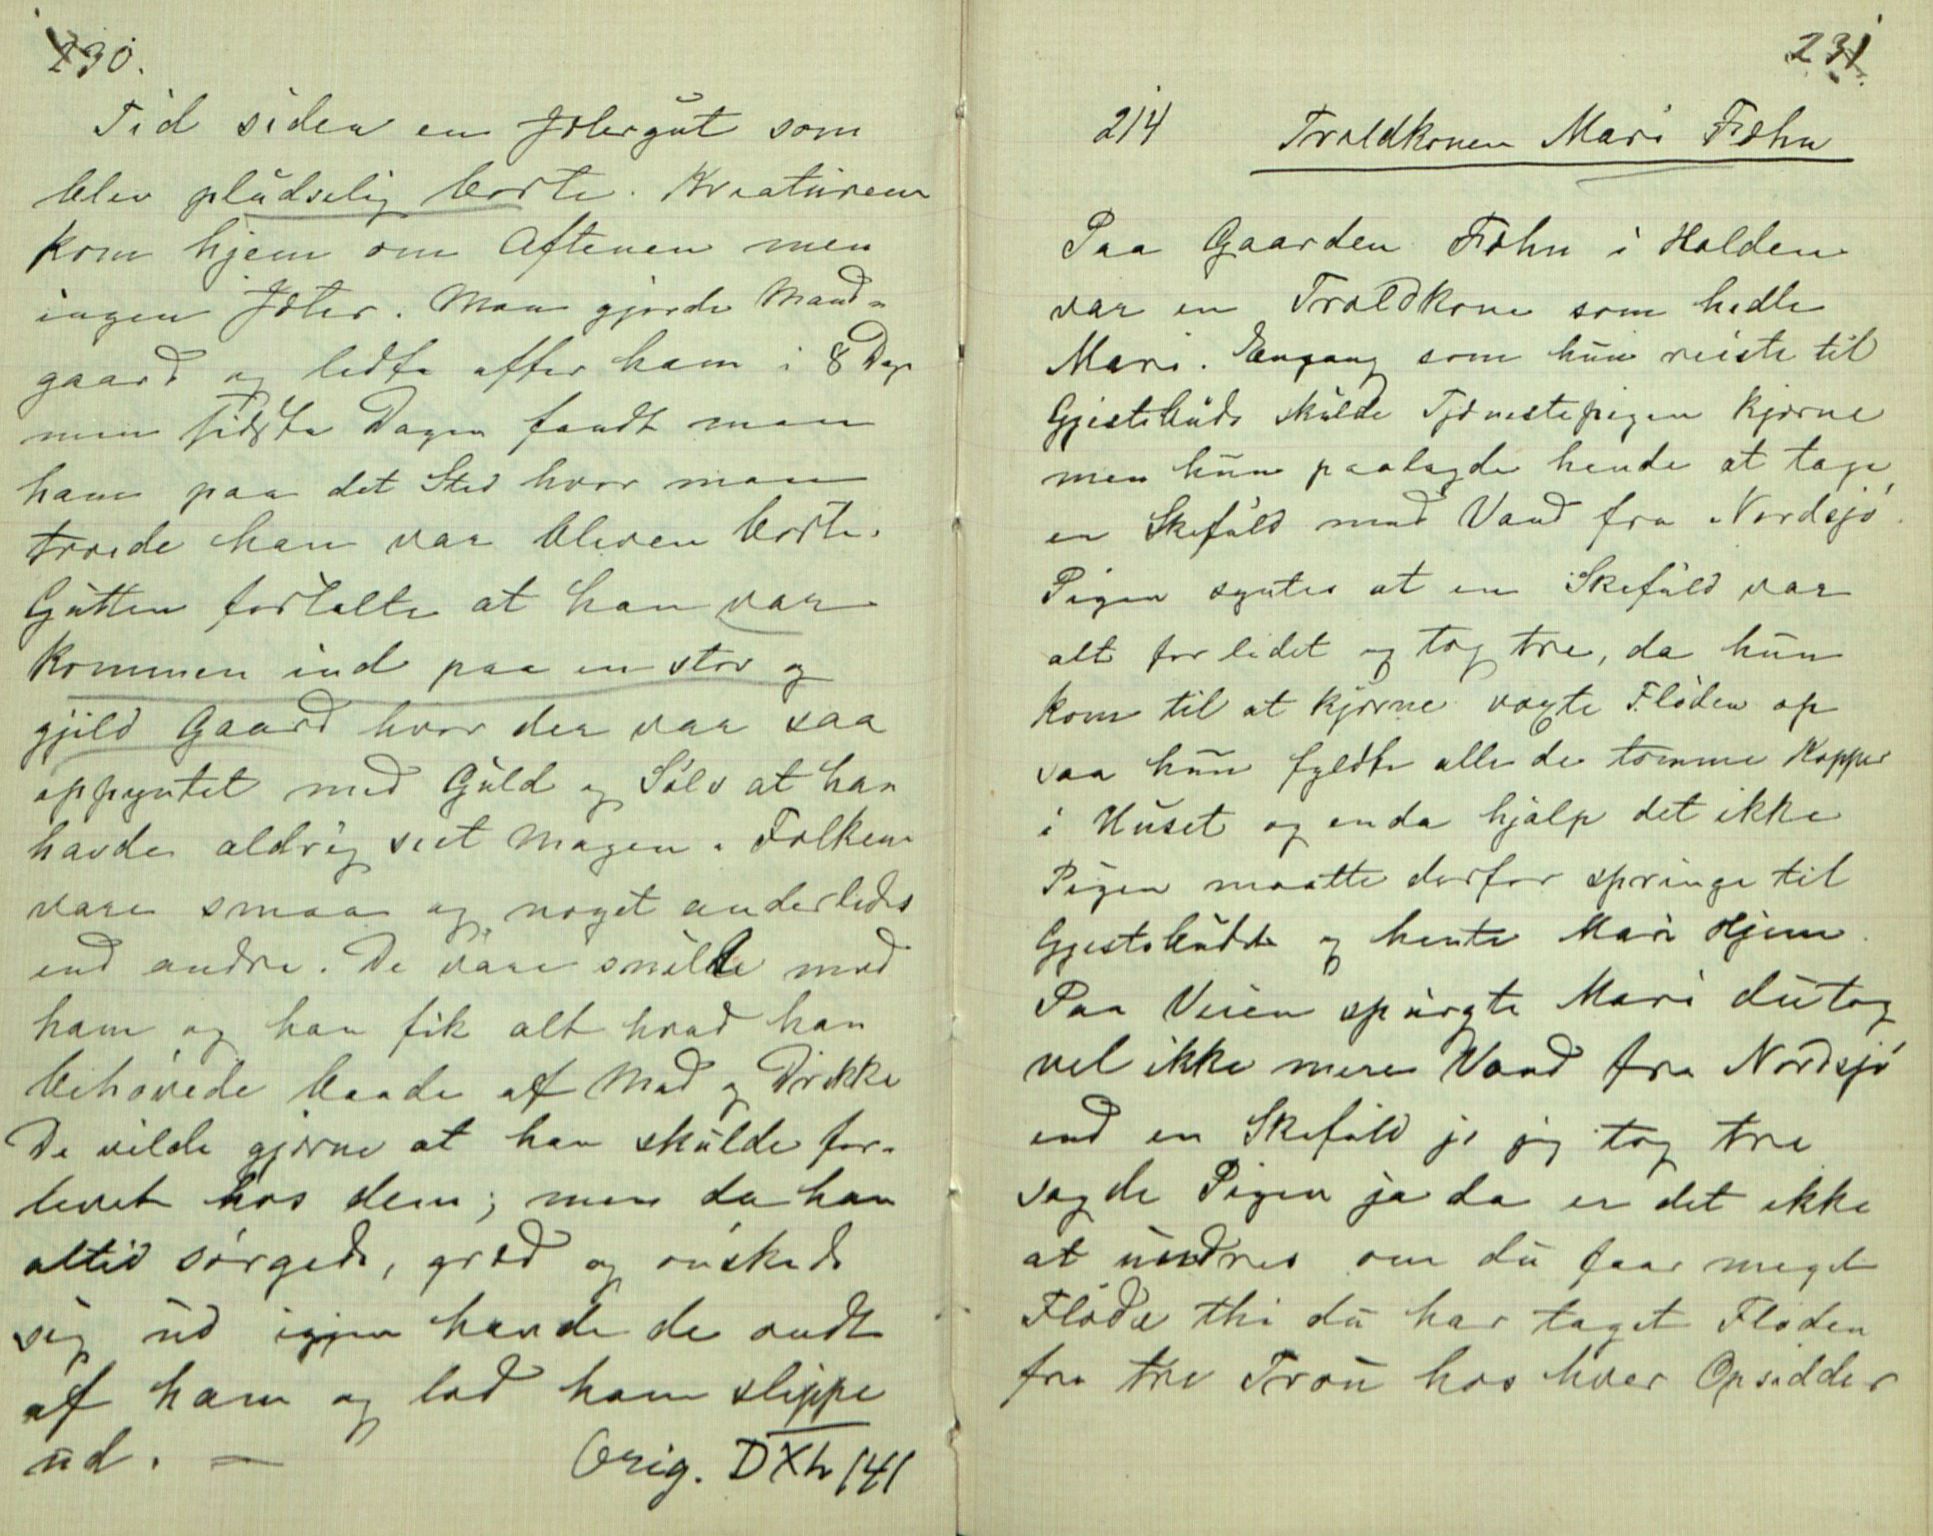 230.
Tid siden en Jætergut som
blev pludselig borte. Kreaturene
kom hjem om Aftenen men
ingen Jæter. Man gjorde Mand-
gaard og ledte efter ham i 8 Dage
men sidste Dagen fandt man
ham paa det Sted hvor man
troede han var bleven borte.
Gutten fortalte at han var
kommen ind paa en stor og
gjild Gaard hvor der var saa
oppyntet med Guld og Sølv at han
havde aldrig seet Magen. Folkene
vare smaa og noget anderledes
end andre. De vare snille mod
ham og han fik alt hvad han
behøvede baade af Mad og Drikke
De vilde gjerne at han skulde for-
blevet hos dem; men da han
altid sørgede, græd og ønskede
sig ud igjen havde de ondt
af ham og lod ham slippe
ud. —
Orig. DXh 141
231
214 Troldkonen Mari Fæhn
Paa Gaarden Fæhn i Holden
var en Troldkone som hedte
Mari. Engang som hun reiste til
Gjestebuds skulde Tjenestepigen kjærne
men hun paalagde hende at tage
en Skefuld med Vand fra Nordsjø.
Pigen syntes at en Skefuld var
alt for lidet og tog tre, da hun
kom til at kjærne voxte Fløden op
saa hun fyldte alle de tomme Kopper
i Huset og enda hjalp det ikke
Pigen maatte derfor springe til
Gjestebudet og hente Mari Hjem.
Paa Veien spurgte Mari du tog
vel ikke mere Vand fra Nordsjø
end en Skefuld jo jeg tog tre
sagde Pigen ja da er det ikke
at undres om du faar meget
Fløde thi du har taget Fløden
fra tre Trau hos hver Opsidder